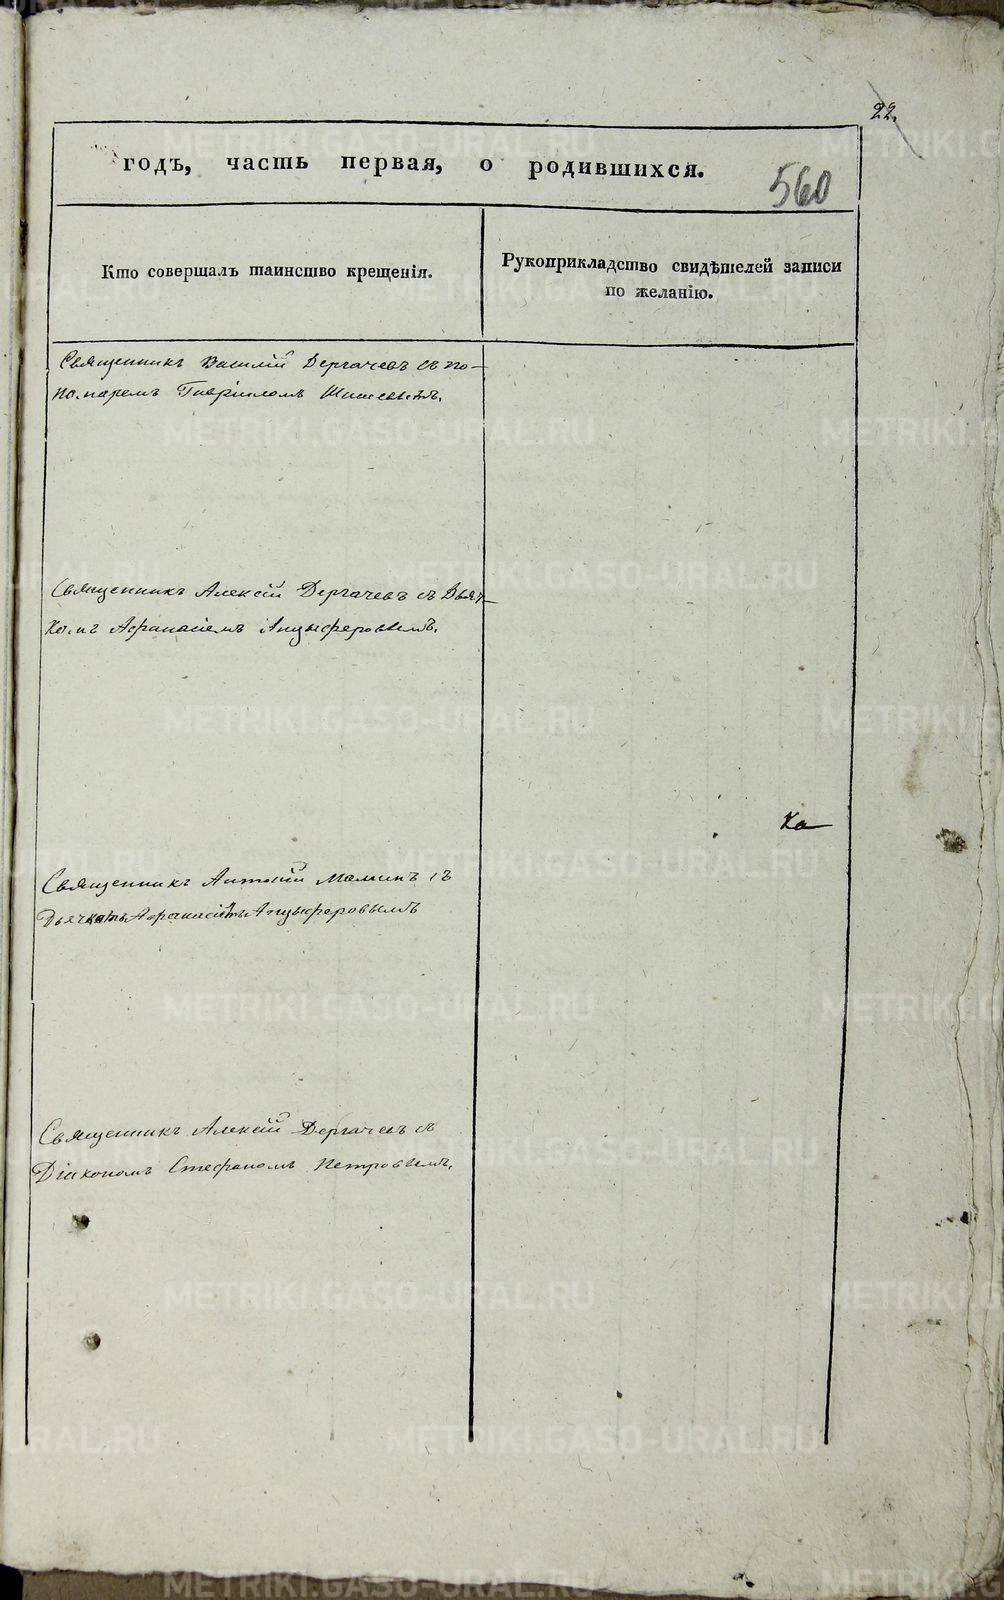 22.
годъ, часть первая, о родившихся.
560
Кто совершалъ таинство крещенія.
Рукоприкладство свидѣтелей записи
по желанію.
Священникъ Василій Дергачевъ съ по-
номаремъ Гавріиломъ
Священникъ Алексій Дергачевъ съ Дьяч-
комъ Афанасіемъ Анцыферовымъ.
Ка
Священникъ Антоній Маминъ съ
Дьячкомъ Афанасіемъ Анцыферовымъ
Священникъ Алексій Дергачевъ съ
Діакономъ Стефаномъ Петровымъ.
METRIKI.GASO-URAL.RU